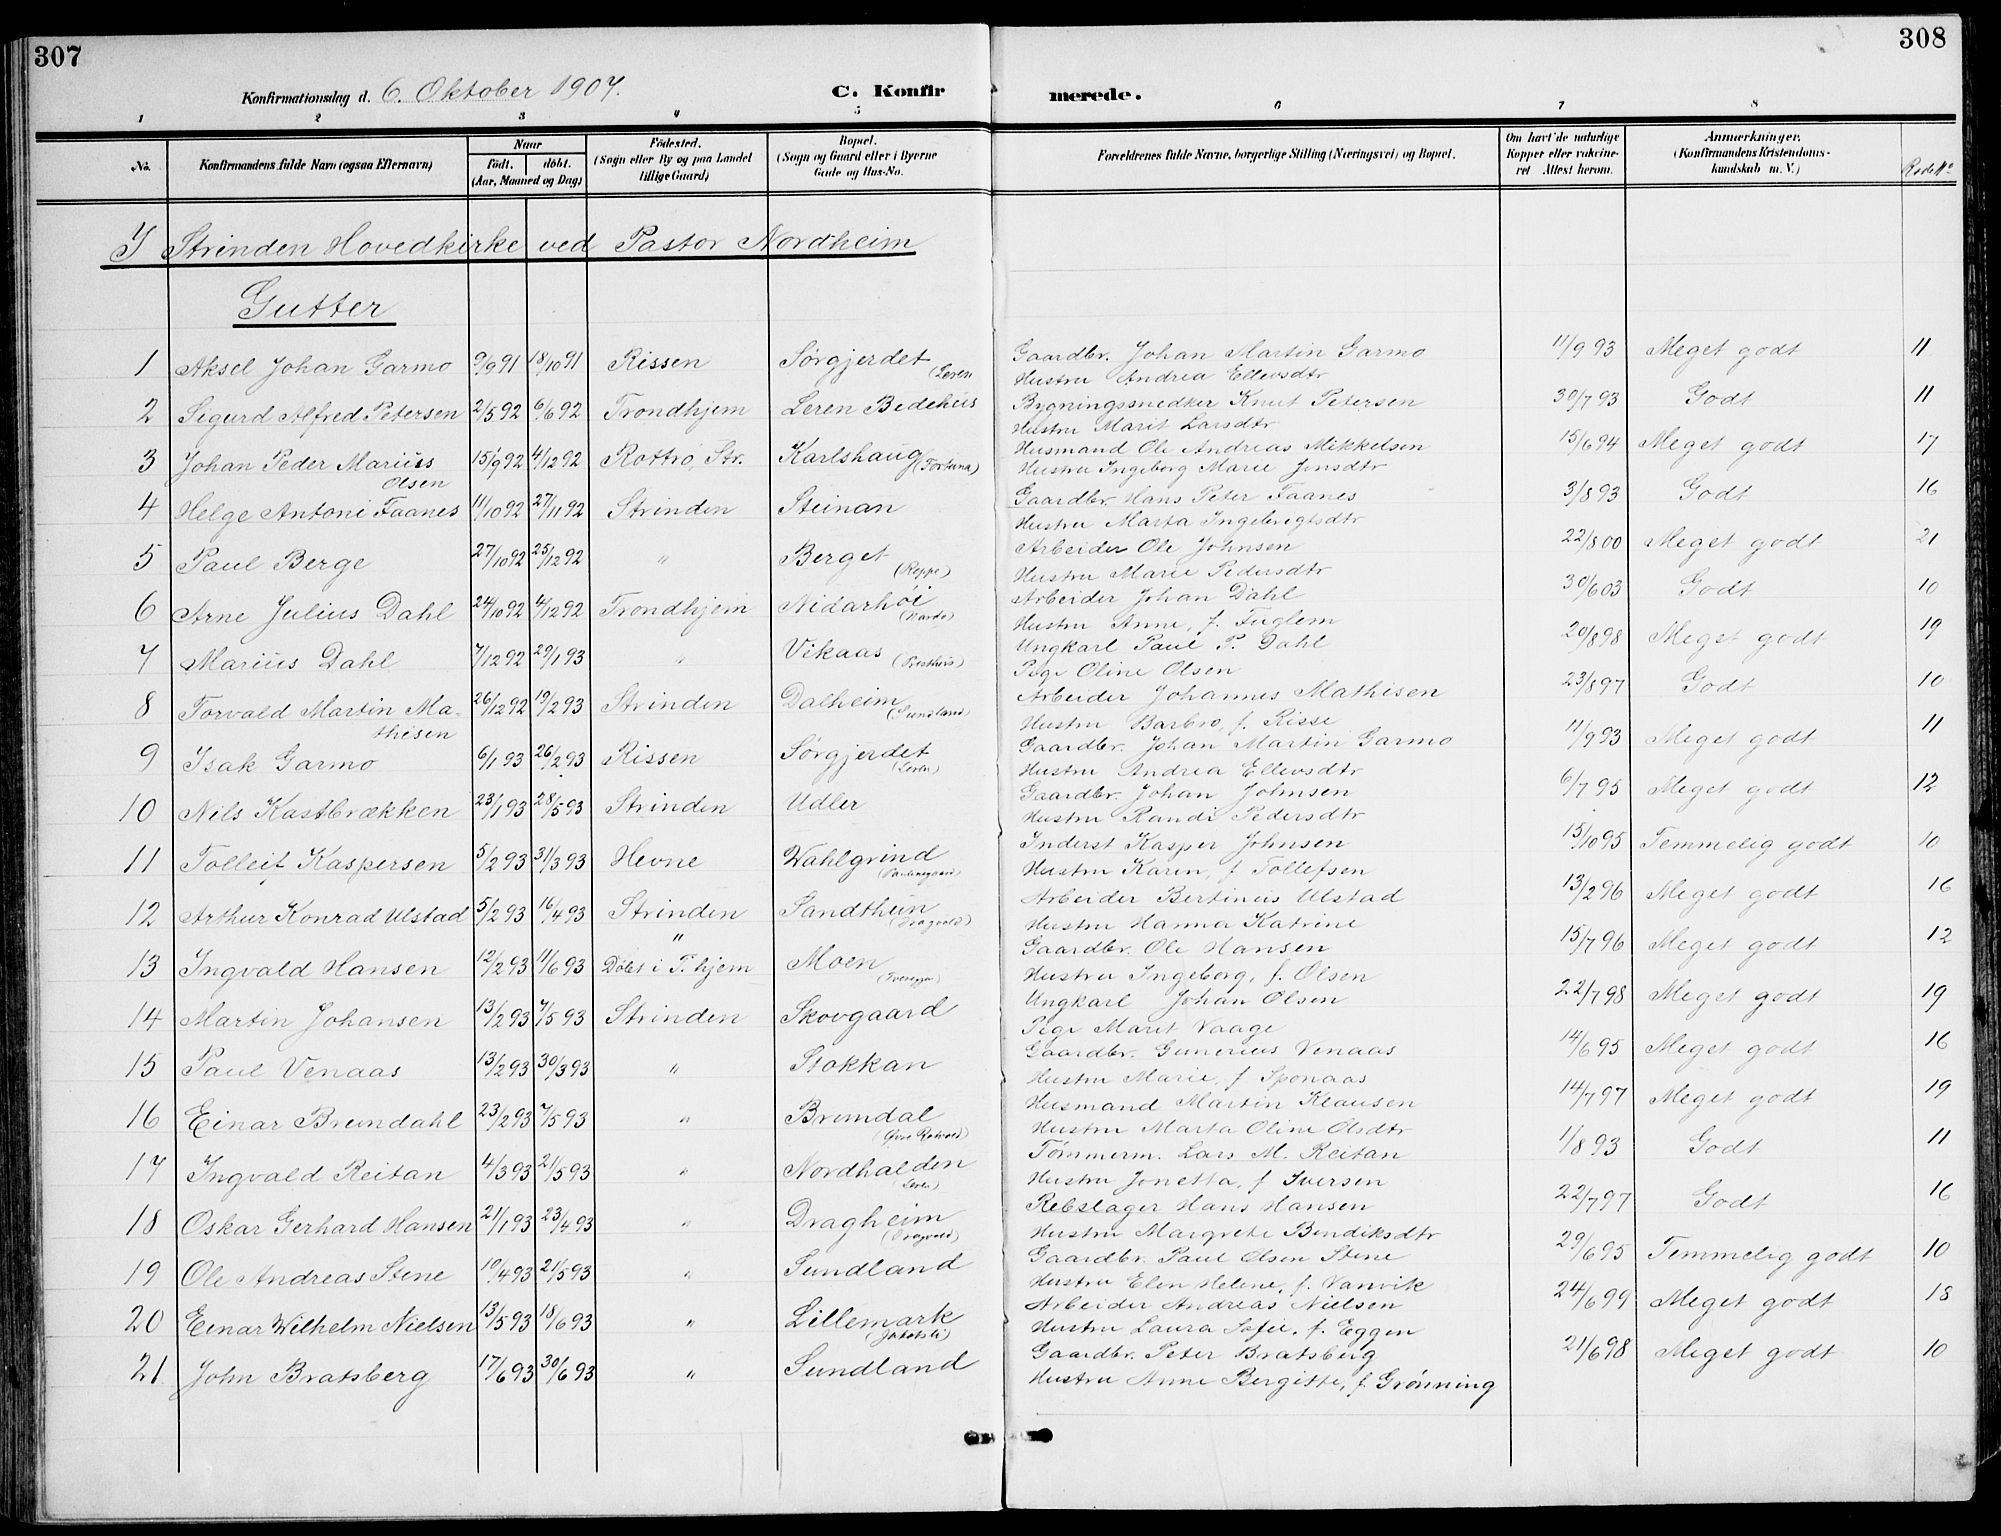 307
308
Konfirmationsdag d. 6. Oktober 1907.
C. Konfirmerede.
1 2 3 4 5 6 7 8
No.
Konfirmandens fulde Navn (ogsaa Efternavn)
Naar
født. døbt.
(Aar, Maaned og Dag)
Fødested.
(Sogn eller By og paa Landet
tillige Gaard)
Bopæl.
(Sogn og Gaard eller i Byerne
Gade og Hus-No.
Forældrenes fulde Navne, borgerlige Stilling (Næringsvei) og Bopæl.
Om havt de naturlige
Kopper eller vakcine-
ret Attest herom.
Anmærkninger.
(Konfirmandens Kristendoms-
kundskab m. V.)
Rode No
I Strinden Hovedkirke ved Pastor Nordheim
Gutter
1 Aksel Johan Garmo 9/9 91 18/10 91 Rissen Sørgjerdet (Leren Gaardbr. Johan Martin Garmo 11/9 93 Meget godt 11
Hustru Andrea Ellevsdtr
2 Sigurd Alfred Petersen 2/5 92 6/6 92 Trondhjem Leren Bedehus Bygningssnedker Knut Petersen 30/7 93 Godt 11
Hustru Marit Larsdtr
3 Johan Peder Marius Olsen 15/9 92 4/12 92 Rottro, Str. Karlshaug (Fortuna) Husmand Ole Andreas Mikkelsen 15/6 94 Meget godt 17
Hustru Ingeborg Marie Jensdtr
4 Helge Antoni Faanes 11/10 92 27/11 92 Strinden Steinan Gaardbr. Hans Peter Faanes 3/8 93 Godt 16
Hustru Marta Ingebrigtsdtr
5 Paul Berge 27/10 92 25/12 92 " Berget (Reppe) Arbeider Ole Johnsen 22/8 00 Meget godt 21
Hustru Marie Pedersdtr
6 Arne Julius Dahl 24/10 92 4/12 92 Trondhjem Nidarhøi (Nardo) Arbeider Johan Dahl 30/6 03 Godt 10
Hustru Anne, f. Fuglem
7 Marius Dahl 7/12 92 29/1 93 " Vikaas (Presthus) Ungkarl Paul P. Dahl 20/8 98 Meget godt 19
Pige Oline Olsen
8 Torvald Martin Mathisen 26/12 92 19/2 93 Strinden Dalheim (Sundland) Arbeider Johannes Mathisen 23/8 97 Godt 10
Hustru Barbro, f. Risse
9 Isak Garmo 6/1 93 26/2 93 Rissen Sørgjerdet (Leren) Gaardbr. Johan Martin Garmo 11/9 93 Meget godt 11
Hustru Andrea Ellevsdtr
10 Nils Kastbrækken 23/1 93 28/5 93 Strinden Udler Gaardbr. Johan Johnsen 6/7 95 Meget godt 12
Hustru Randi Pedersdtr
11 Tolleif Kaspersen 5/2 93 31/3 93 Hevne Wahlgrind Inderst Kasper Johnsen 15/10 95 Temmelig godt 10
Hustru Karen, f Tollefsen
12 Arthur Konrad Ulstad 5/2 93 16/4 93 Strinden Sandthun (Dragvold) Arbeider Bertinius Ulstad 13/2 96 Meget godt 16
Hustru Hanna Katrine
13 Ingvald Hansen 12/2 93 11/6 93 " Døbt i T.hjem Moen Gaardbr. Ole Hansen 15/7 96 Meget godt 12
Hustru Ingeborg, f. Olsen
14 Martin Johansen 13/2 93 7/5 93 Strinden Skovgaard Ungkarl Johan Olsen 22/7 98 Meget godt 19
Pige Marit Vaage
15 Paul Venaas 13/2 93 30/3 93 " Stokkan Gaardbr. Gunerius Venaas 14/6 95 Meget godt 16
Hustru Marie, f Sponaas
16 Einar Brundahl 23/2 93 7/5 93 " Brundal Husmand Martin Klausen 14/7 97 Meget godt 19
Hustru Marta Oline Olsdtr
17 Ingvald Reitan 4/3 93 21/5 93 " Nordhalden (Leren) Tømmerm. Lars M. Reitan 1/8 93 Godt 11
Hustru Jonetta, f Iversen
18 Oskar Gerhard Hansen 21/1 93 23/4 93 " Dragheim (Dragvold) Rebslager Hans Hansen 22/7 97 Godt 16
Hustru Margrete Bendiksdtr
19 Ole Andreas Stene 10/4 93 21/5 93 " Sundland Gaardbr. Paul Olsen Stene 29/6 95 Temmelig godt 10
Hustru Elen Helene, f. Vanvik
20 Einar Wilhelm Nielsen 13/5 93 18/6 93 " Lillemark (Jakobsli) Arbeider Andreas Nielsen 24/6 99 Meget godt 18
Hustru Laura Sofie, f. Eggen
21 John Bratsberg 17/6 93 30/6 93 " Sundland Gaardbr. Peter Bratsberg 21/6 98 Meget godt 10
Hustru Anne Bergitte, f. Grønning